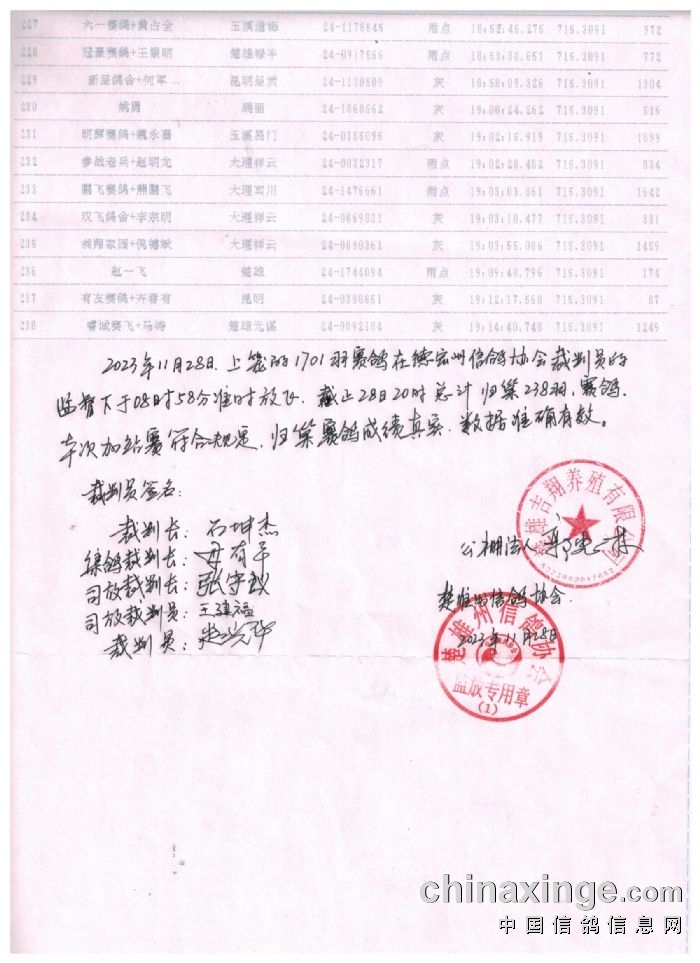 227 六一赛鸽+黄占全 玉溪通海 24-1178645 雨点 18:52:45.275 715.3091 972
228 冠豪赛鸽+王崇明 楚雄禄丰 24-0917566 雨点 18:53:30.651 715.3091 772
229 新星鸽舍+何军 昆明呈贡 24-1130509 灰 18:58:09.326 715.3091 1304
230 姚勇 瑞丽 24-1868662 灰 19:00:24.262 715.3091 516
231 明辉赛鸽+魏永喜 玉溪易门 24-0155095 灰 19:02:15.919 715.3091 1099
232 参战老兵+赵明龙 大理祥云 24-0032317 雨点 19:02:28.482 715.3091 834
233 鹏飞赛鸽+熊鹏飞 大理宾川 24-1476661 雨点 19:03:03.861 715.3091 1642
234 双飞鸽舍+李宗明 大理祥云 24-0869033 灰 19:03:10.477 715.3091 331
235 翱翔家园+倪德斌 大理祥云 24-0890361 灰 19:03:55.086 715.3091 1459
236 赵一飞 楚雄 24-1744094 雨点 19:09:40.796 715.3091 174
237 有友赛鸽+齐春有 昆明 24-0388851 灰 19:12:17.568 715.3091 87
238 睿诚赛飞+马涛 楚雄元谋 24-0092184 灰 19:14:40.748 715.3091 1249
2023年11月28日.上笼的1701羽赛鸽在德宏州信鸽协会裁判员的
监督下于08时58分准时放飞.截止28日20时总计归巢238羽.赛鸽.
本次加站赛符合规定.归巢赛鸽成绩真实.数据准确有效。
裁判员签名:
裁判长:石坤杰
集鸽裁判长:
司放裁判长:张守敏
司放裁判员:王建福
裁判员:
楚雄吉翔养殖有限公司
公棚法人:
楚雄州信鸽协会.
2023年11月28日
楚雄州信鸽协会
监放专用章
(1)
chinaxinge.com
中国信鸽信息网